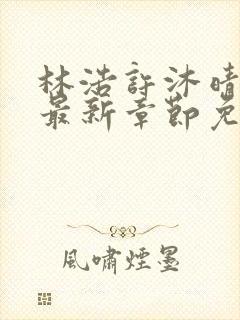 林浩許沐晴
最新章節免
風嘯煙墨